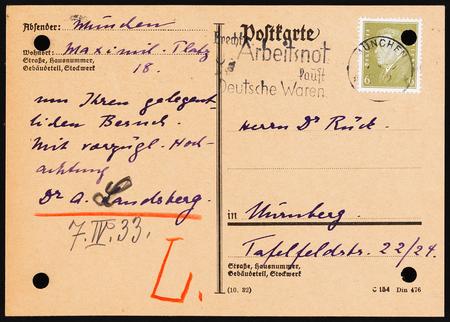 Absender: München
Wohnort: Maximil. Platz
Straße, Hausnummer,
Gebäudeteil, Stockwerk
18.
um Ihren gelegent
lichen Besuch.
Mit vorzügl. Hoch-
achtung
Dr A. Landsberg.
7.IV.33.
L.
Postkarte
Arbeitsnot
kauft
Deutsche Waren.
MÜNCHEN
6
Herrn Dr Rück.
in Nürnberg.
Tafelfeldstr. 22/24.
Straße, Hausnummer,
Gebäudeteil, Stockwerk
(10. 32)
C 154 Din 476